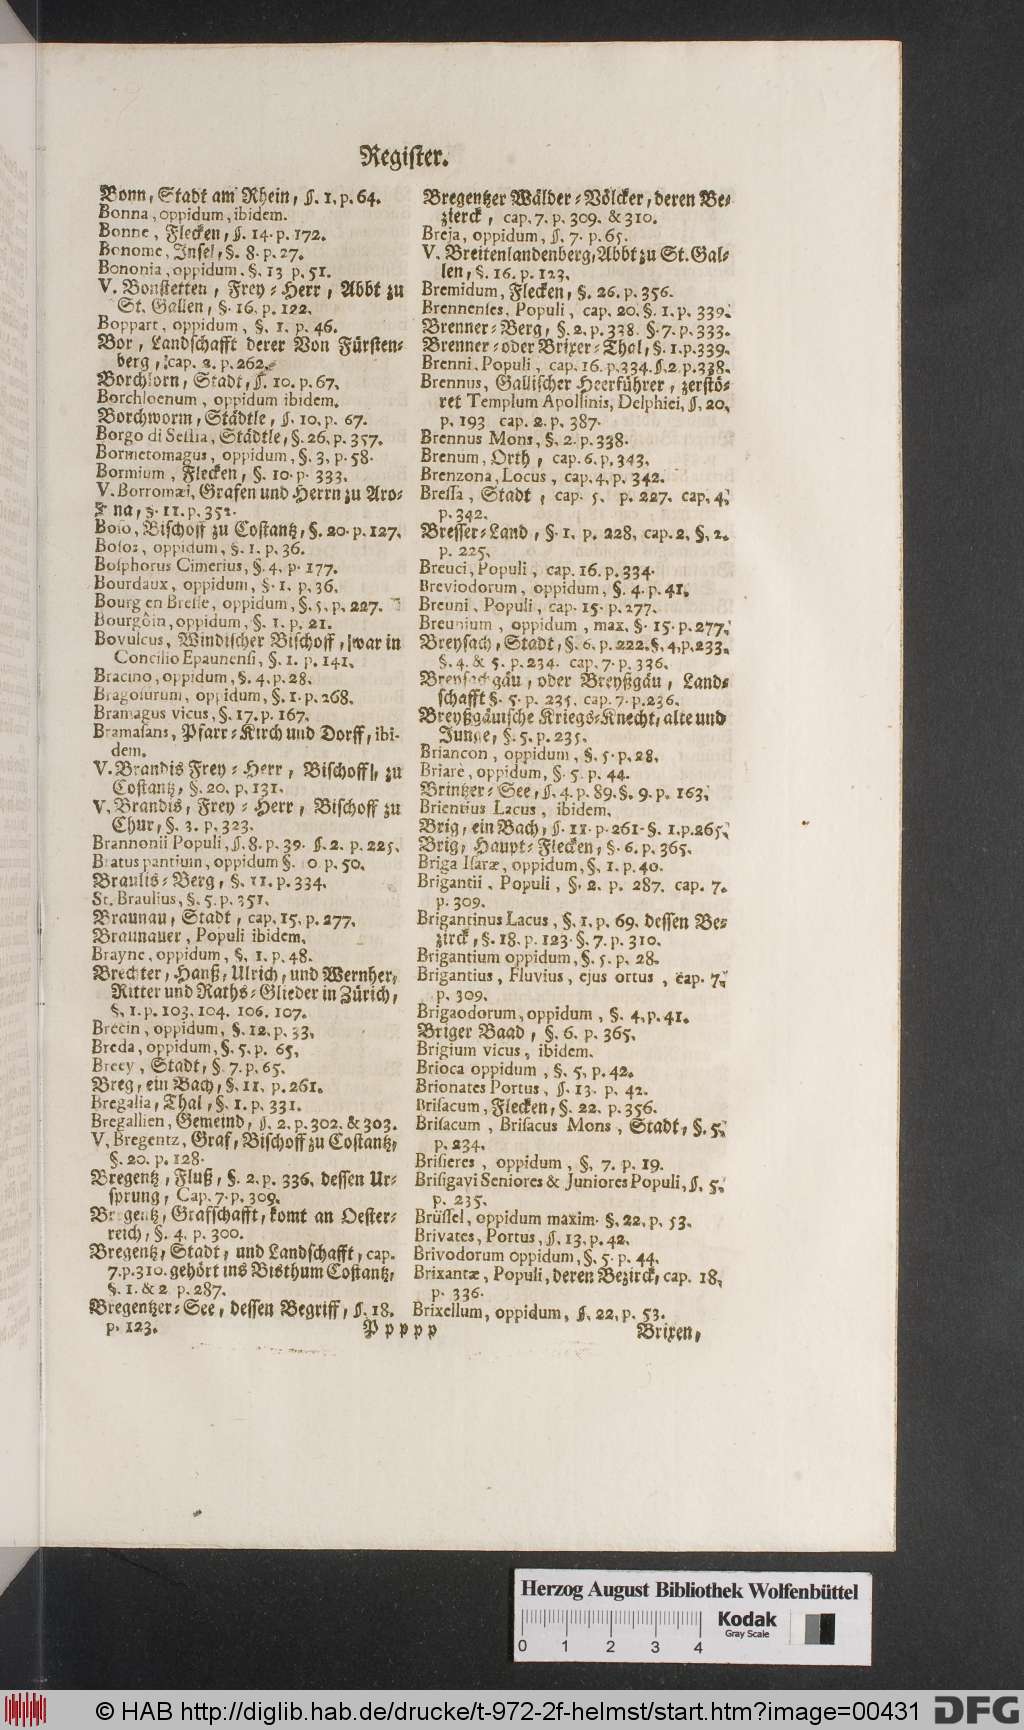 Register.
Bonn, Stadt am Rhein, §. 1. p. 64.
Bonna, oppidum, ibidem.
Bonne, Flecken, §. 14. p. 172.
Bonome, Insel, §. 8. p. 27.
Bononia, oppidum. §. 13 p. 51.
V. Bonstetten, Frey-Herr, Abbt zu
St. Gallen, §. 16. p. 122.
Boppart, oppidum, §. 1. p. 46.
Bor, Landschafft derer Von Fürsten-
berg, cap. 2. p. 262.
Borchlorn, Stadt, §. 10. p. 67.
Borchloenum, oppidum ibidem.
Borchworm, Städtle, §. 10. p. 67.
Borgo di Sessia, Städtle, §. 26. p. 357.
Bormetomagus, oppidum, §. 3. p. 58.
Bormium, Flecken, §. 10. p. 333.
V. Borromæi, Grafen und Herrn zu Aro-
na, §. 11. p. 352.
Boso, Bischoff zu Costantz, §. 20. p. 127.
Bosoz, oppidum, §. 1. p. 36.
Bosphorus Cimerius, §. 4. p. 177.
Bourdaux, oppidum, §. 1. p. 36.
Bourg en Bresse, oppidum, §. 5. p. 227.
Bourgôin, oppidum, §. 1. p. 21.
Bovulcus, Windischer Bischoff, war in
Concilio Epaunensi, §. 1. p. 141.
Bracino, oppidum, §. 4. p. 28.
Bragosurum, oppidum, §. 1. p. 268.
Bramagus vicus, §. 17. p. 167.
Bramasans, Pfarr-Kirch und Dorff, ibi-
dem.
V. Brandis Frey-Herr, Bischoff, zu
Costantz, §. 20. p. 131.
V. Brandis, Frey-Herr, Bischoff zu
Chur, §. 3. p. 323.
Brannonii Populi, §. 8. p. 39. §. 2. p. 225.
Bratus pantium, oppidum §. 10 p. 50.
Braulis-Berg, §. 11. p. 334.
St. Braulius, §. 5. p. 351.
Braunau, Stadt, cap. 15. p. 277.
Braunauer, Populi ibidem.
Brayne, oppidum, §. 1. p. 48.
Brechter, Hanß, Ulrich, und Wernher,
Ritter und Raths-Glieder in Zürich,
§. 1. p. 103. 104. 106. 107.
Brecin, oppidum, §. 12. p. 33.
Breda, oppidum, §. 5. p. 65.
Breey, Stadt, §. 7. p. 65.
Breg, ein Bach, §. 11. p. 261.
Bregalia, Thal, §. 1. p. 331.
Bregallien, Gemeind, §. 2. p. 302. & 303.
V. Bregentz, Graf, Bischoff zu Costantz,
§. 20. p. 128.
Bregentz, Fluß, §. 2. p. 336. dessen Ur-
sprung, Cap. 7. p. 309.
Bregentz, Grafschafft, komt an Oester-
reich, §. 4. p. 300.
Bregentz, Stadt, und Landschafft, cap.
7. p. 310. gehört ins Bisthum Costantz,
§. 1. & 2 p. 287.
Bregentzer-See, dessen Begriff, §. 18.
p. 123.
Bregentzer Wälder-Völcker, deren Be-
zierck, cap. 7. p. 309. & 310.
Breja, oppidum, §. 7. p. 65.
V. Breitenlandenberg, Abbt zu St. Gal-
len, §. 16. p. 123.
Bremidum, Flecken, §. 26. p. 356.
Brennenses, Populi, cap. 20. §. 1. p. 339.
Brenner-Berg, §. 2. p. 338. §. 7. p. 333.
Brenner- oder Brixer-Thal, §. 1. p. 339.
Brenni, Populi, cap. 16. p. 334. §. 2. p. 338.
Brennus, Gallischer Heerführer, zerstö-
ret Templum Apollinis, Delphici, §. 20.
p. 193 cap. 2. p. 387.
Brennus Mons, §. 2. p. 338.
Brenum, Orth, cap. 6. p. 343.
Brenzona, Locus, cap. 4. p. 342.
Bressa, Stadt, cap. 5. p. 227. cap. 4.
p. 342.
Bresser-Land, §. 1. p. 228. cap. 2. §. 2.
p. 225.
Breuci, Populi, cap. 16. p. 334.
Breviodorum, oppidum, §. 4. p. 41.
Breuni, Populi, cap. 15. p. 277.
Breunium, oppidum, max. §. 15. p. 277.
Breysach, Stadt, §. 6. p. 222. §. 4. p. 233.
§. 4. & 5. p. 234. cap. 7. p. 336.
Breysachgäu, oder Breyßgäu, Land-
schafft §. 5. p. 235. cap. 7. p. 236.
Breyßgäuische Kriegs-Knecht, alte und
Junge, §. 5. p. 235.
Briancon, oppidum, §. 5. p. 28.
Briare, oppidum, §. 5. p. 44.
Brintzer-See, §. 4. p. 89. §. 9. p. 163.
Brientius Lacus, ibidem.
Brig, ein Bach, §. 11. p. 261. §. 1. p. 265.
Brig, Haupt-Flecken, §. 6. p. 365.
Briga Isaræ, oppidum, §. 1. p. 40.
Brigantii, Populi, §. 2. p. 287. cap. 7.
p. 309.
Brigantinus Lacus, §. 1. p. 69. dessen Be-
zirck, §. 18. p. 123. §. 7. p. 310.
Brigantium oppidum, §. 5. p. 28.
Brigantius, Fluvius, ejus ortus, cap. 7.
p. 309.
Brigaodorum, oppidum, §. 4. p. 41.
Briger Baad, §. 6. p. 365.
Brigium vicus, ibidem.
Brioca oppidum, §. 5. p. 42.
Brionates Portus, §. 13. p. 42.
Brisacum, Flecken, §. 22. p. 356.
Brisacum, Brisacus Mons, Stadt, §. 5.
p. 234.
Brisieres, oppidum, §. 7. p. 19.
Brisigavi Seniores & Juniores Populi, §. 5.
p. 235.
Brüssel, oppidum maxim. §. 22. p. 53.
Brivates, Portus, §. 13. p. 42.
Brivodorum oppidum, §. 5. p. 44.
Brixantæ, Populi, deren Bezirck, cap. 18.
p. 336.
Brixellum, oppidum, §. 22. p. 53.
P p p p p
Brixen,
Herzog August Bibliothek Wolfenbüttel
Kodak
Gray Scale
0 1 2 3 4
© HAB http://diglib.hab.de/drucke/t-972-2f-helmst/start.htm?image=00431
DFG